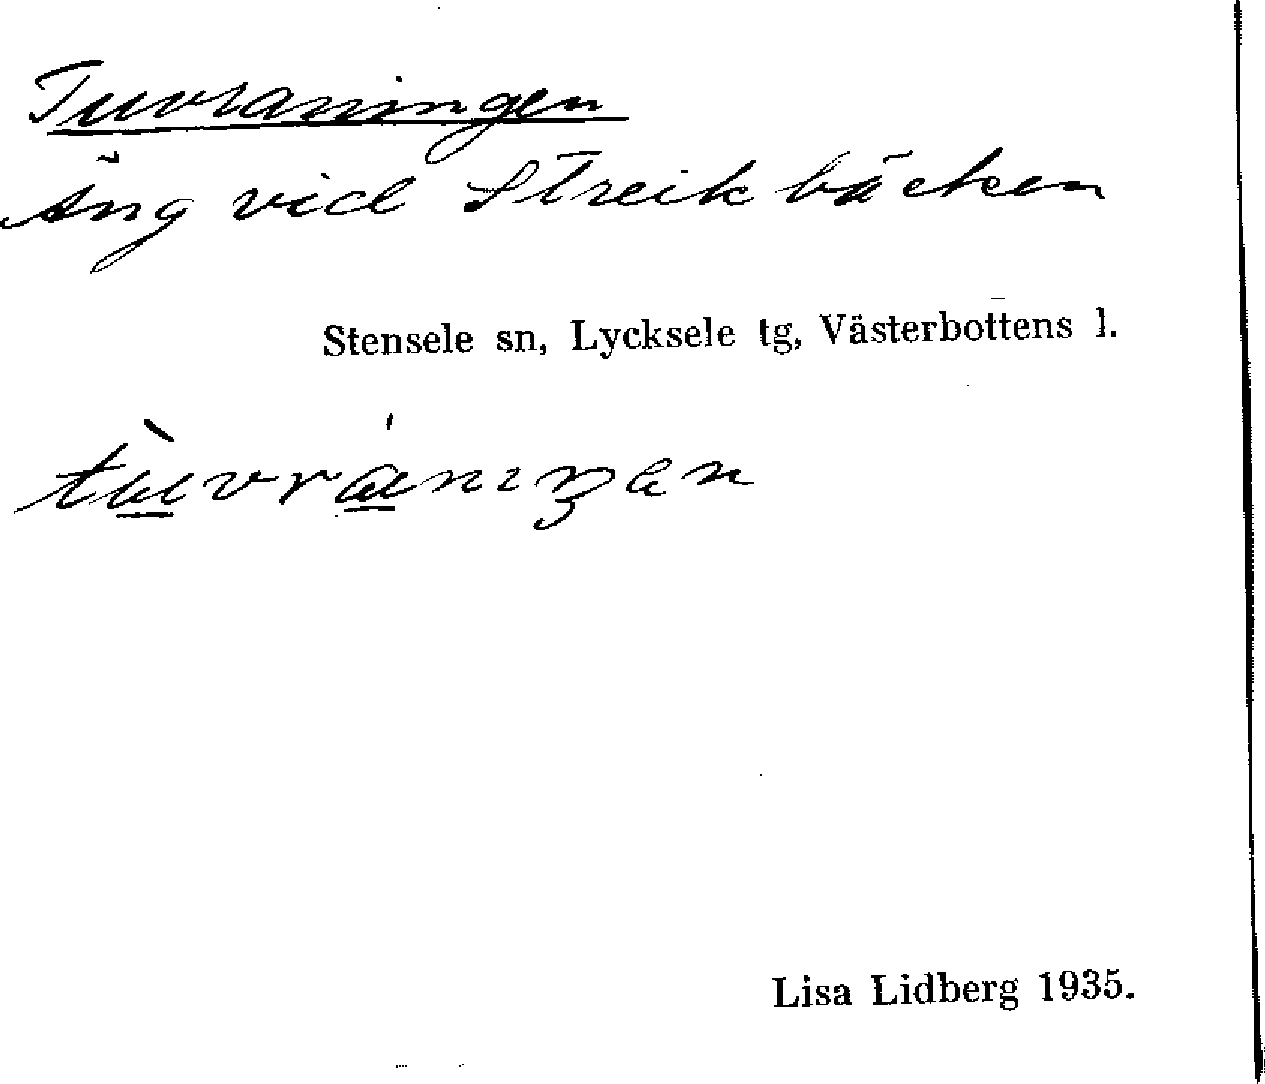 Tuvraningen
Äng vid Streikbäcken
Stensele sn, Lycksele tg, Västerbottens l.
tù̲vrá̲nıŋen
Lisa Lidberg 1935.